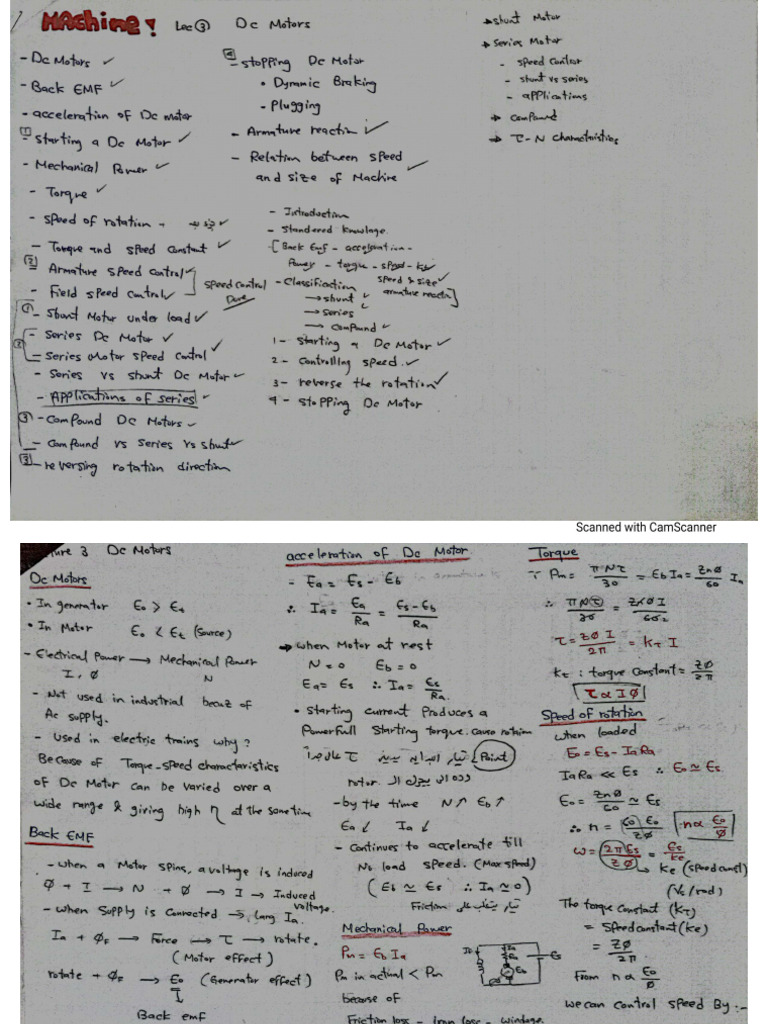 MACHINE! Lec ③ Dc Motors
- Dc Motors ✓
- Back EMF ✓
- acceleration of Dc motor
[1] - starting a Dc Motor ✓
- Mechanical Power ✓
- Torque ✓
- Speed of rotation
- Torque and speed constant ✓
[2] - Armature speed control ✓
- Field speed control ✓
speed control
Done
① - Shunt Motor under load ✓
② - Series Dc Motor ✓
- Series Motor speed control ✓
- Series vs shunt Dc Motor ✓
- Applications of series ✓
③ - Compound Dc Motors ✓
- Compound vs Series vs shunt ✓
[3] - reversing rotation direction
[4] - stopping Dc Motor
• Dynamic Braking
- Plugging
- Armature reaction ✓
- Relation between speed
and size of Machine ✓
- Introduction
- Standered knowlage
- [Back Emf - acceleration -
Power - torque - speed - ke
speed & size ✓
armature reactn
- Classification
→ shunt ✓
→ series
→ compound ✓
1 - starting a Dc Motor ✓
2 - controlling speed. ✓
3 - reverse the rotation ✓
4 - stopping Dc Motor
→ shunt Motor
→ Series Motor
- speed control
- shunt vs series
- applications
→ compound
→ T-N characteristics
Scanned with CamScanner
ture 3 Dc Motors
Dc Motors
• In generator Eo > Et
• In Motor Eo < Et (Source)
- Electrical Power → Mechanical Power
I, Φ N
- Not used in industrial becuz of
Ac supply.
- Used in electric trains why?
Because of Torque-speed characteristics
of Dc Motor can be varied over a
wide range & giving high η at the sometime
Back EMF
- when a Motor spins, a voltage is induced
Φ + I → N + Φ → I → Induced
voltage.
- when supply is connected → larg Ia.
Ia + ΦF → Force → τ → rotate.
(Motor effect)
rotate + ΦF → Eo (Generator effect)
Back emf
acceleration of Dc Motor
- Ea = Es - Eb
∴ Ia = Ea/Ra = Es-Eb/Ra
→ when Motor at rest
N = 0 Eb = 0
Ea = Es ∴ Ia = Es/Ra.
• Starting current Produces a
Powerfull starting torque. cause rotation
Point
-by the time N↑ Eb↑
Ea↓ Ia↓
- Continues to accelerate till
No load speed. (Max speed)
(Eb ≃ Es ∴ Ia ≃ 0)
Friction
Mechanical Power
Pm = Eb Ia
Pm in actual < Pm
because of
Friction loss - Iron loss - windage
Torque
∵ Pm = πNτ/30 = Eb Ia = Znφ/60 Ia
∴ πNτ/30 = ZnΦI/60
τ = ZΦI/2π = kτ I
kτ : torque constant = ZΦ/2π
τ α IΦ
Speed of rotation
when loaded
Eo = Es - IaRa
IaRa << Es ∴ Eo ≃ Es
Eo = ZnΦ/60 ≃ Es
∴ n = 60 Eo/ZΦ n α Eo/Φ
ω = 2πEs/ZΦ = Es/ke
→ KE (speed const)
(V.s/rad)
The torque constant (Kτ)
= speed constant (ke)
= ZΦ/2π
From n α Eo/Φ
we can control speed By :-